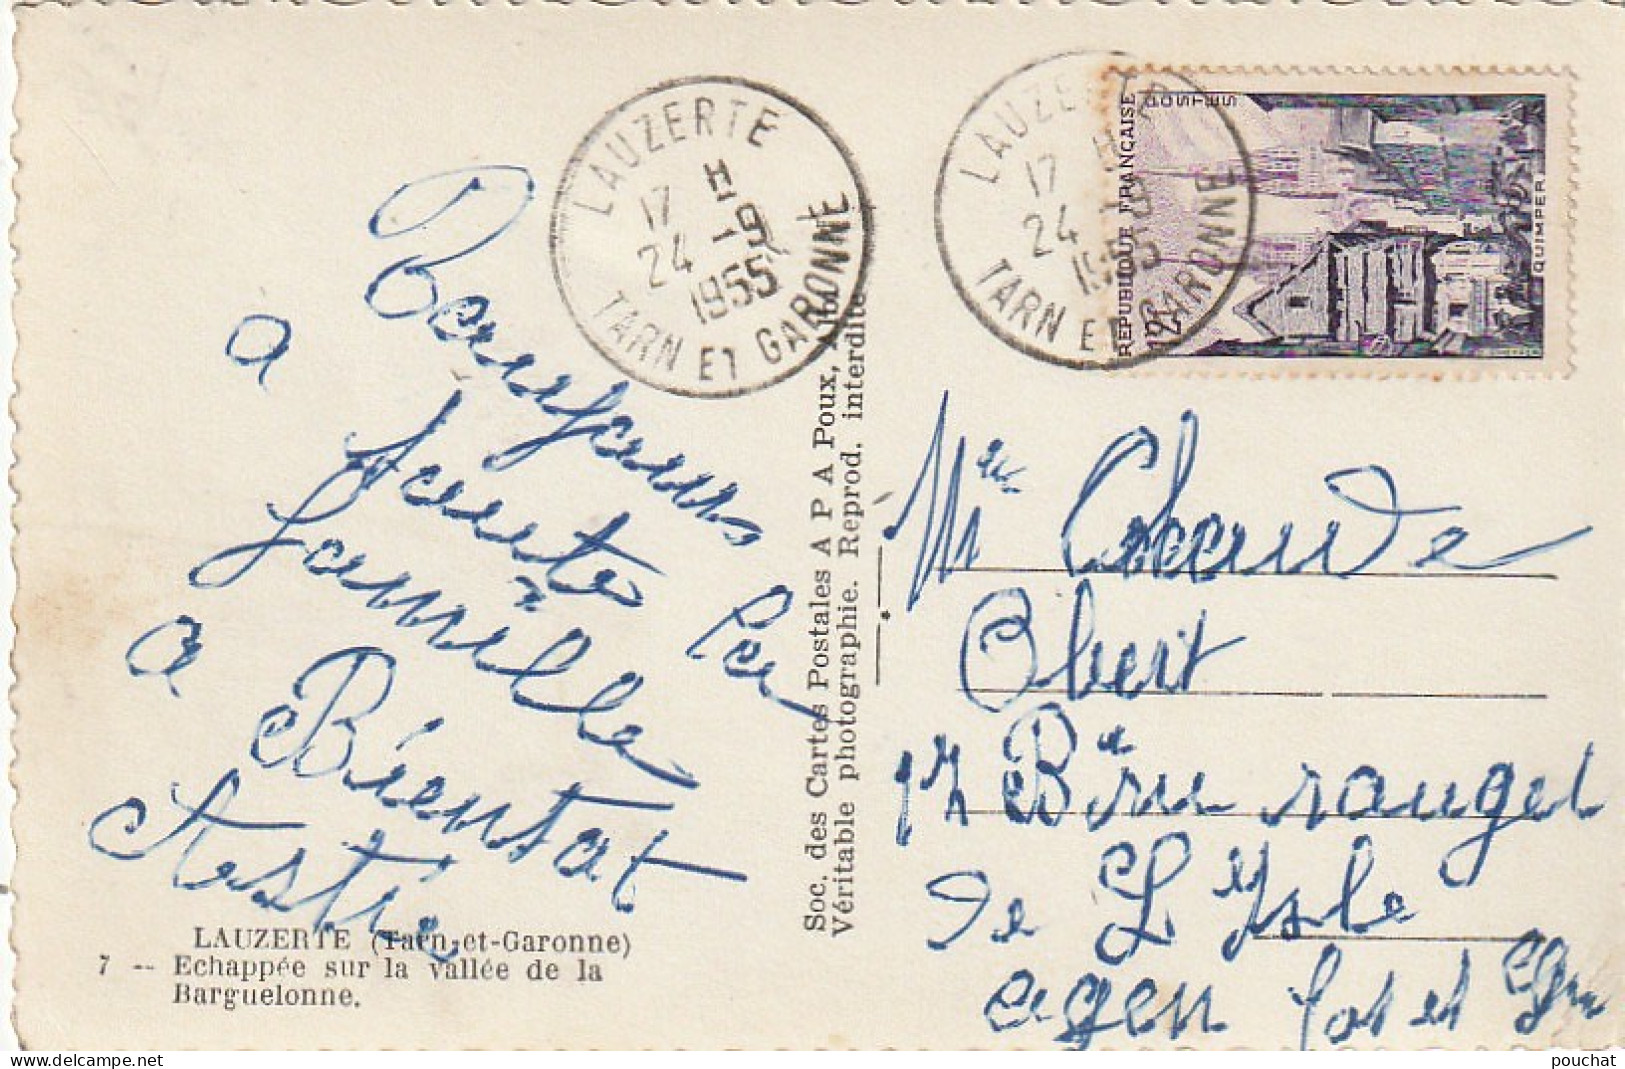 LAUZERTE
17 H
24 -9
1955
TARN ET GARONNE
LAUZERTE
17 H
24 -9
1955
TARN ET GARONNE
REPUBLIQUE FRANÇAISE
POSTES
12F
QUIMPER
Bonjour
a toute la
famille
a Bientot
Soc. des Cartes Postales A P A Poux, Albi
Véritable photographie. Reprod. interdite
Claude
Obert
17 Bis rue
de L'Isle
agen Lot et Gne
LAUZERTE (Tarn-et-Garonne)
7 -- Echappée sur la vallée de la
Barguelonne.
pouchat